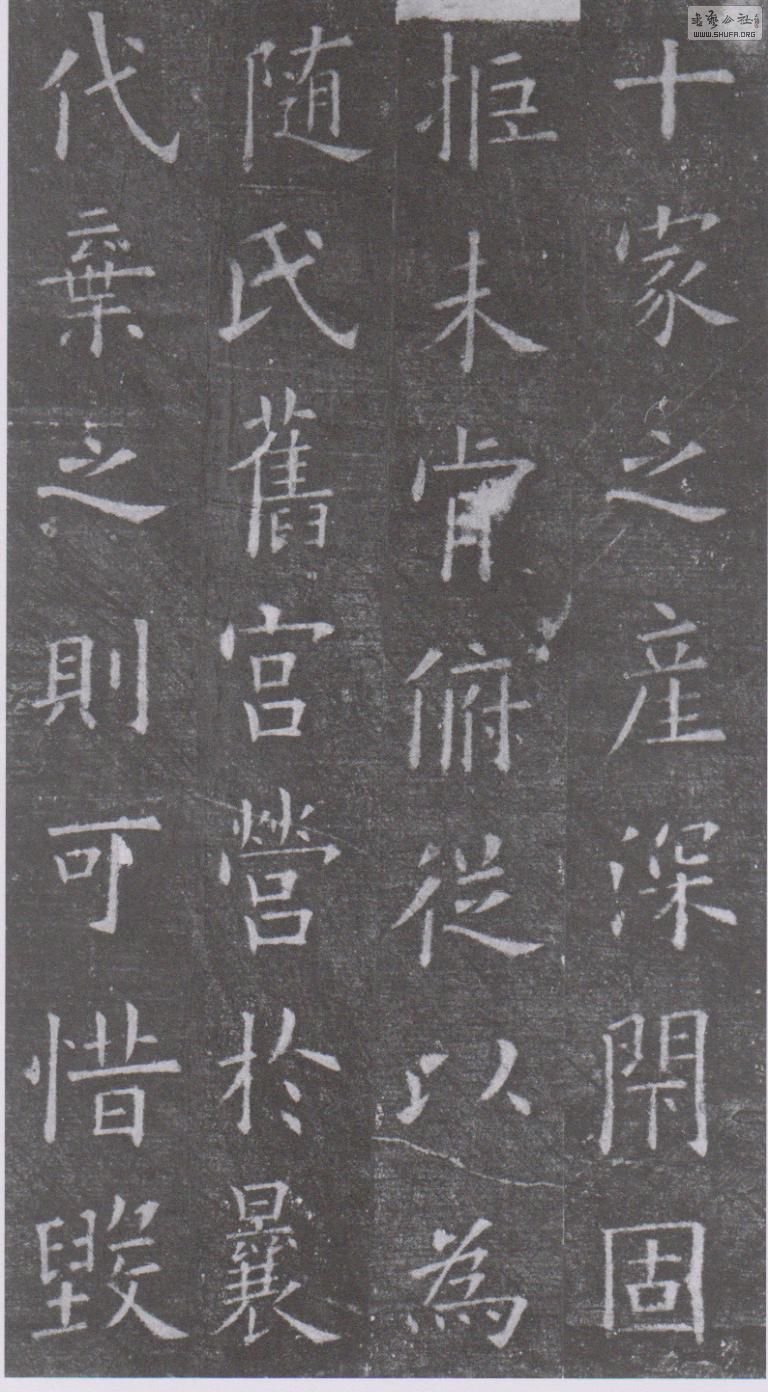 十家之產深閇固
拒未肯俯從以為
随氏舊宮營於曩
代棄之則可惜毀
书艺公社
WWW.SHUFA.ORG